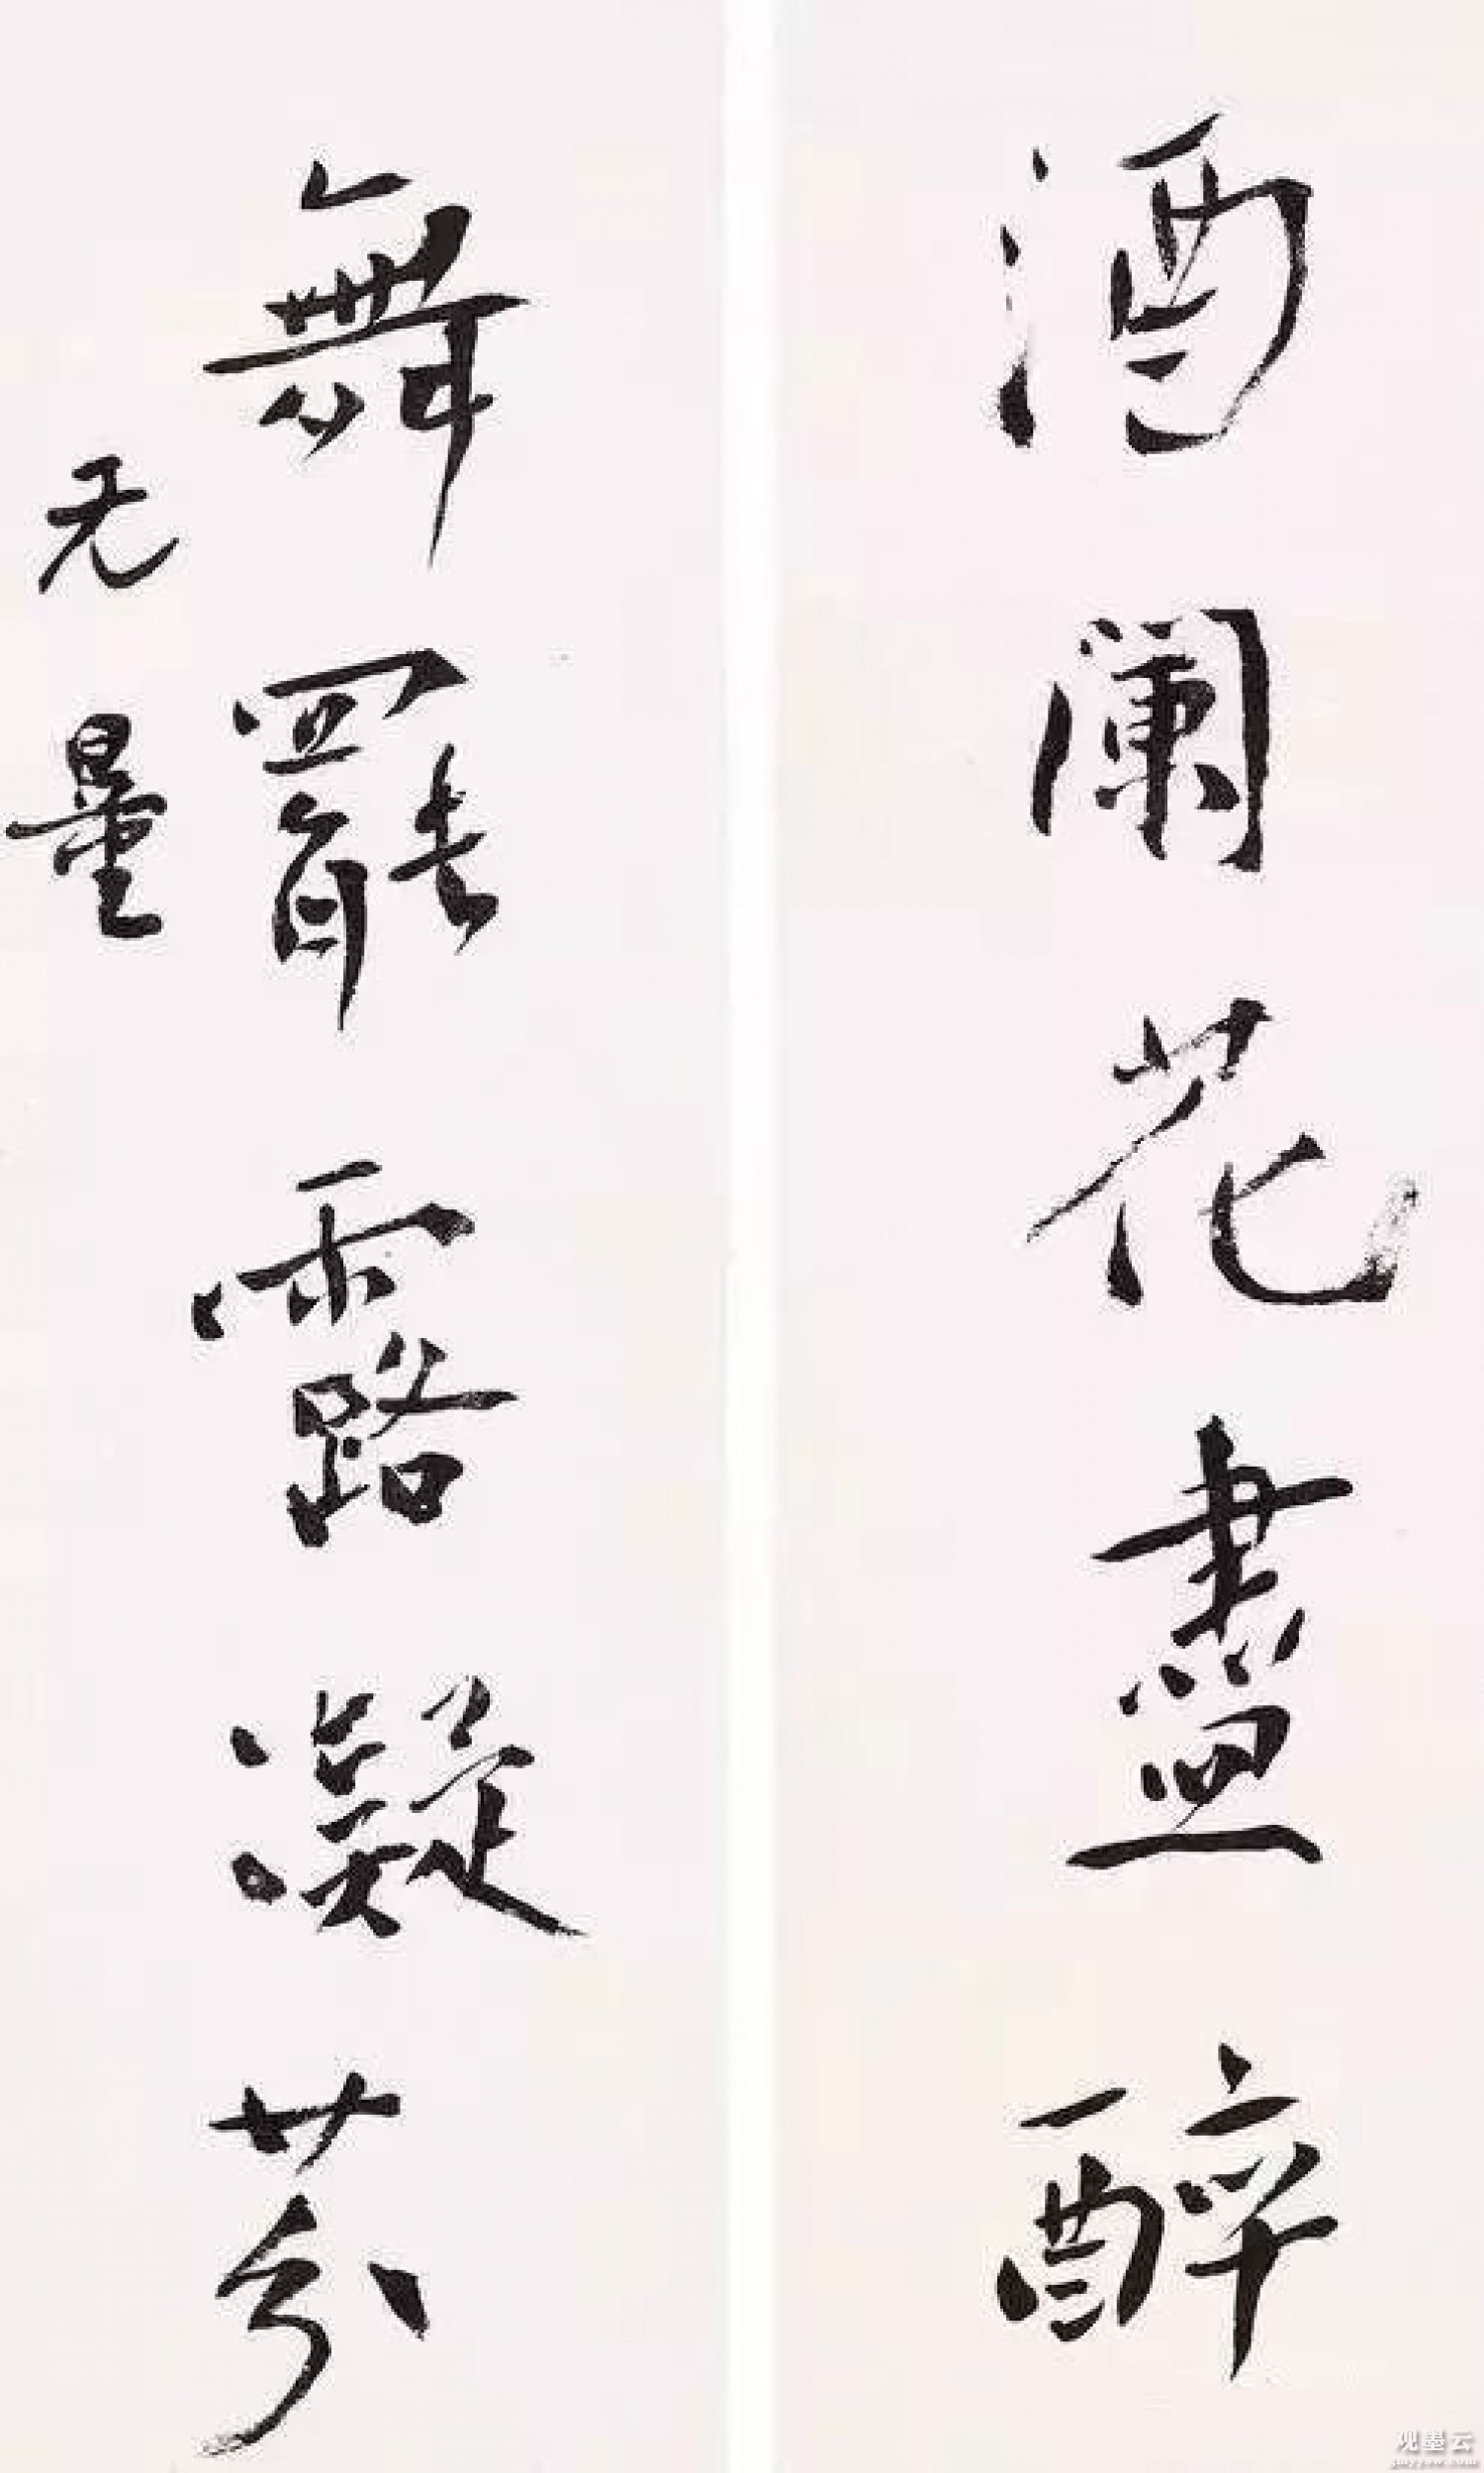 酒闌花盡醉
舞罷露凝芬
无量
观墨云
gmyyow.com